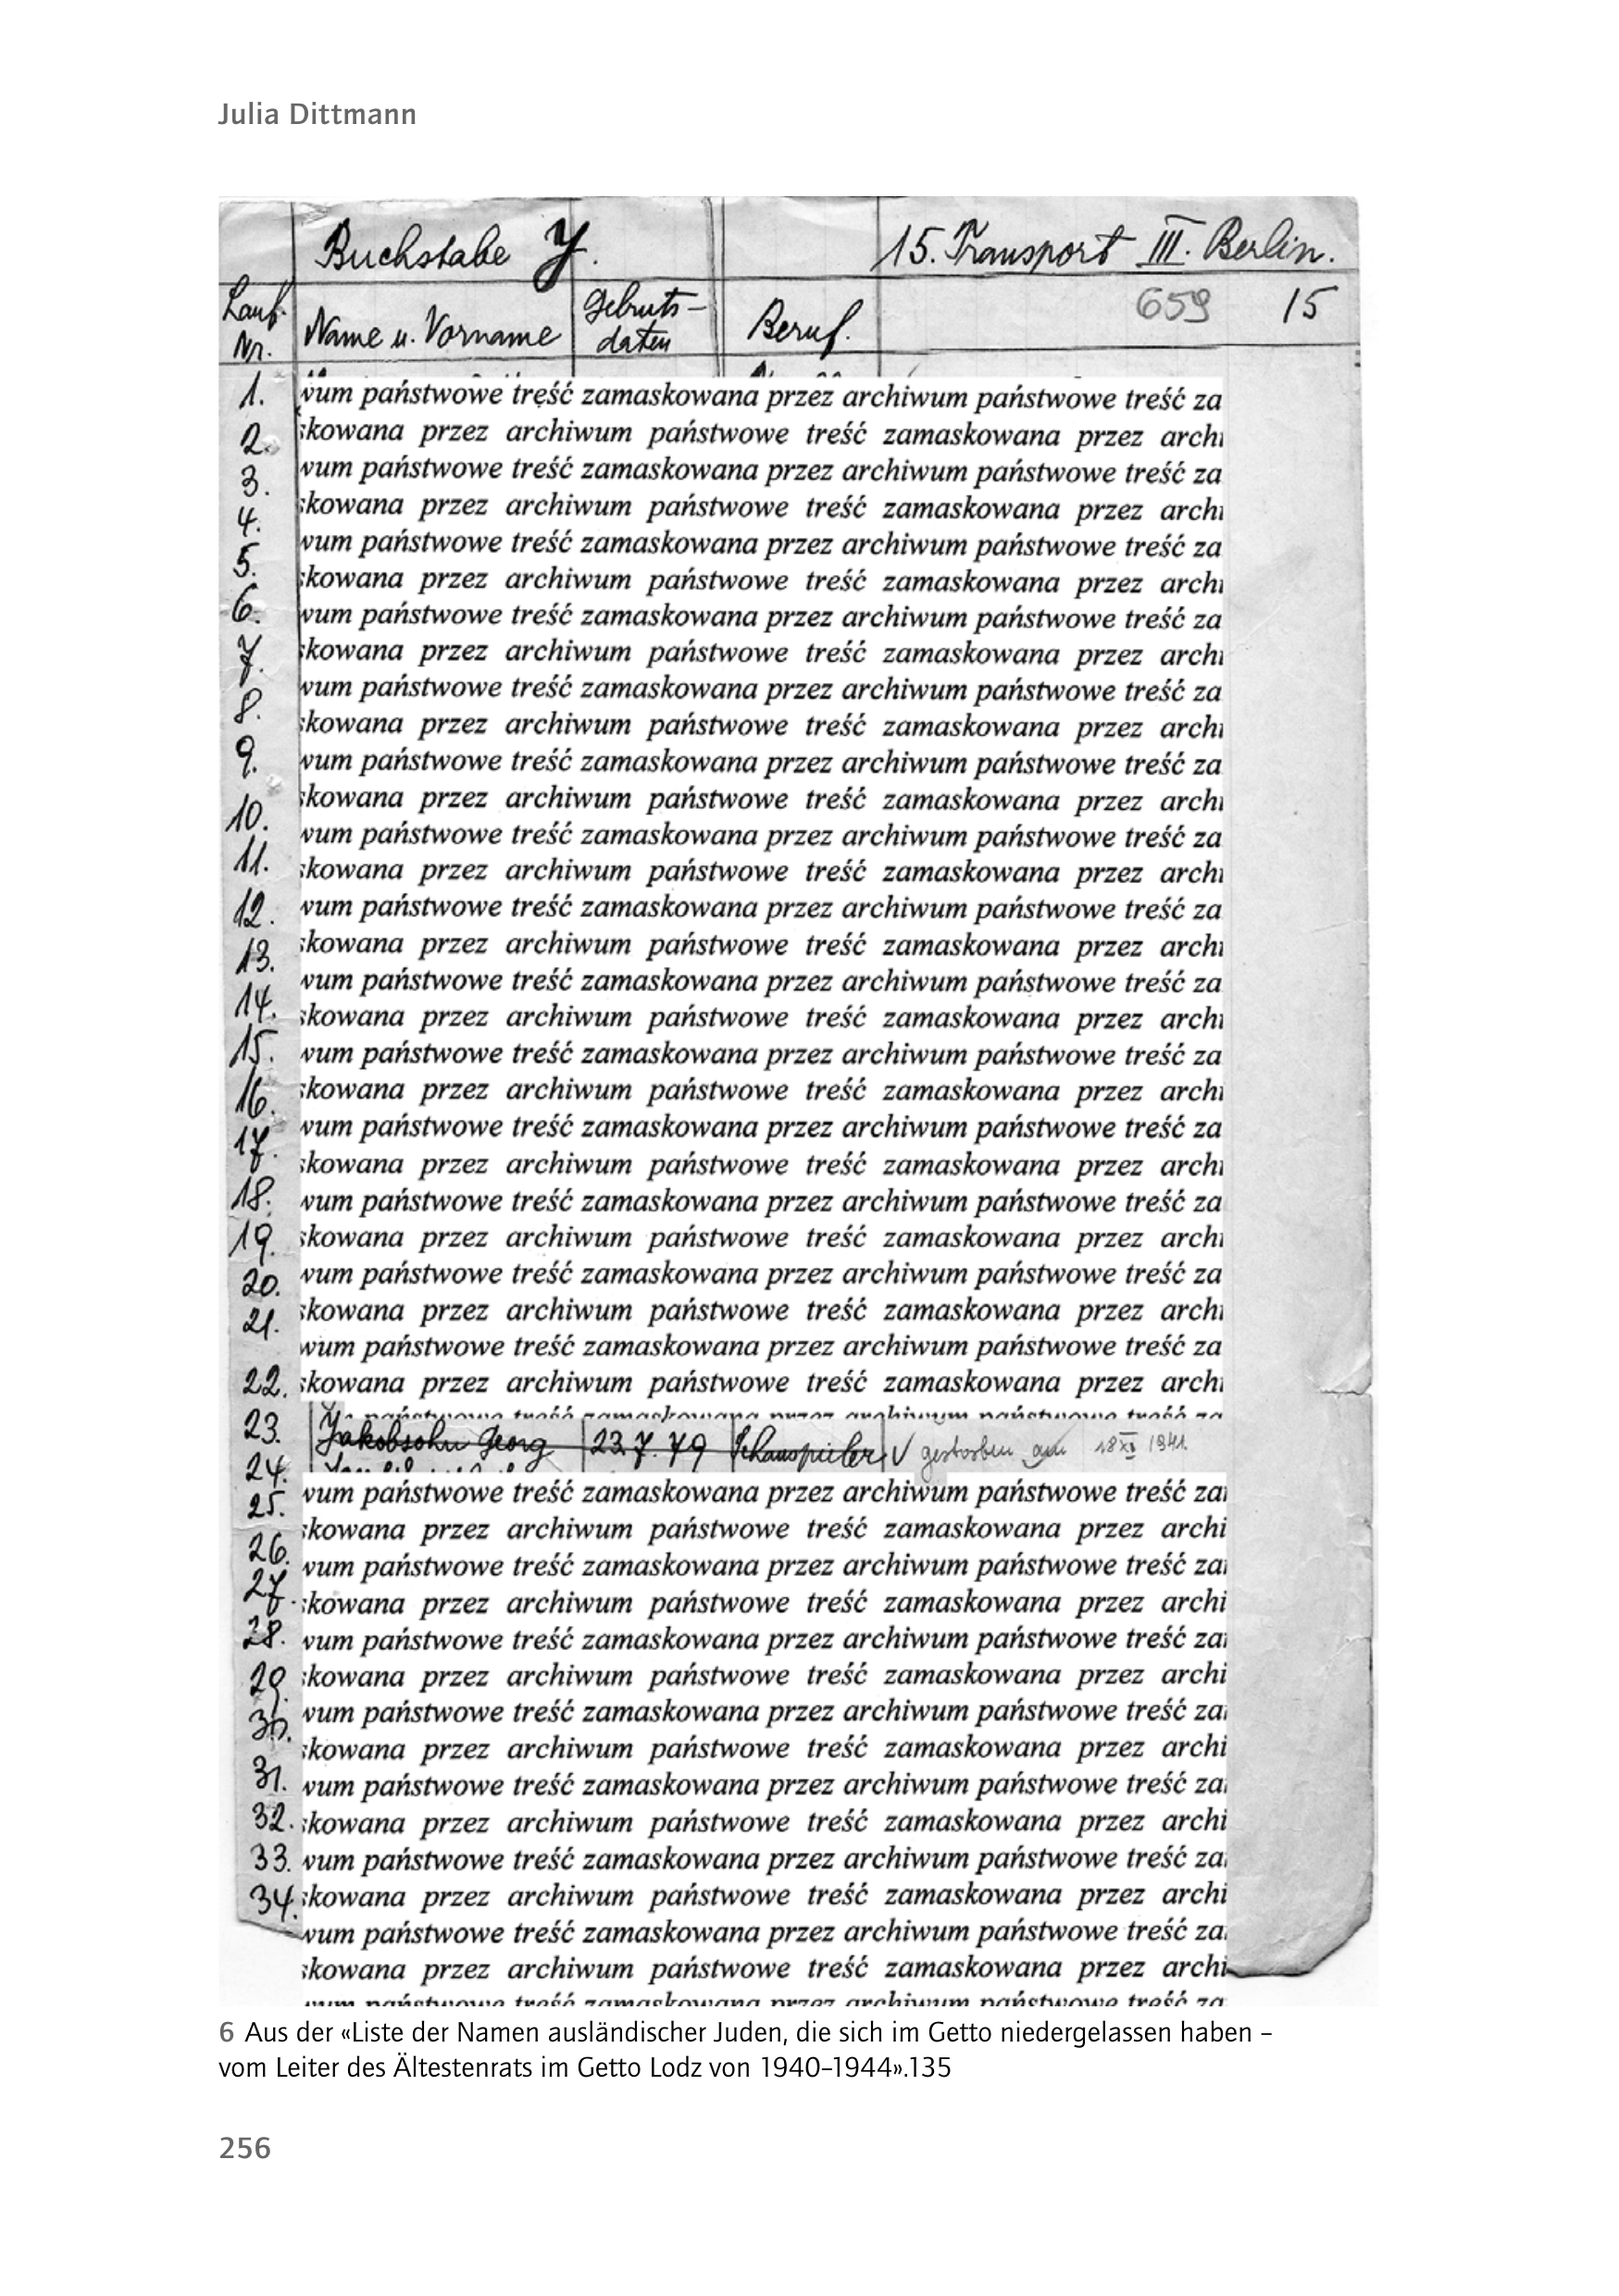 Julia Dittmann
Buchstabe J. 15. Transport III. Berlin.
Lauf. Nr. Name u. Vorname Gebruts-daten Beruf. 659 15
1. wum państwowe treść zamaskowana przez archiwum państwowe treść za
2. skowana przez archiwum państwowe treść zamaskowana przez archi
3. wum państwowe treść zamaskowana przez archiwum państwowe treść za
4. skowana przez archiwum państwowe treść zamaskowana przez archi
5. wum państwowe treść zamaskowana przez archiwum państwowe treść za
skowana przez archiwum państwowe treść zamaskowana przez archi
6. wum państwowe treść zamaskowana przez archiwum państwowe treść za
7. skowana przez archiwum państwowe treść zamaskowana przez archi
wum państwowe treść zamaskowana przez archiwum państwowe treść za
8. skowana przez archiwum państwowe treść zamaskowana przez archi
9. wum państwowe treść zamaskowana przez archiwum państwowe treść za
10. skowana przez archiwum państwowe treść zamaskowana przez archi
wum państwowe treść zamaskowana przez archiwum państwowe treść za
11. skowana przez archiwum państwowe treść zamaskowana przez archi
12. wum państwowe treść zamaskowana przez archiwum państwowe treść za
13. skowana przez archiwum państwowe treść zamaskowana przez archi
wum państwowe treść zamaskowana przez archiwum państwowe treść za
14. skowana przez archiwum państwowe treść zamaskowana przez archi
15. wum państwowe treść zamaskowana przez archiwum państwowe treść za
16. skowana przez archiwum państwowe treść zamaskowana przez archi
17. wum państwowe treść zamaskowana przez archiwum państwowe treść za
skowana przez archiwum państwowe treść zamaskowana przez archi
18. wum państwowe treść zamaskowana przez archiwum państwowe treść za
19. skowana przez archiwum państwowe treść zamaskowana przez archi
20. wum państwowe treść zamaskowana przez archiwum państwowe treść za
21. skowana przez archiwum państwowe treść zamaskowana przez archi
wum państwowe treść zamaskowana przez archiwum państwowe treść za
22. skowana przez archiwum państwowe treść zamaskowana przez archi
23. Jakobsohn Georg 23.7.79 Schauspieler V gestorben am 18 XI 1941.
24.
25. wum państwowe treść zamaskowana przez archiwum państwowe treść za
skowana przez archiwum państwowe treść zamaskowana przez archi
26. wum państwowe treść zamaskowana przez archiwum państwowe treść za
27. skowana przez archiwum państwowe treść zamaskowana przez archi
28. wum państwowe treść zamaskowana przez archiwum państwowe treść za
29. skowana przez archiwum państwowe treść zamaskowana przez archi
30. wum państwowe treść zamaskowana przez archiwum państwowe treść za
skowana przez archiwum państwowe treść zamaskowana przez archi
31. wum państwowe treść zamaskowana przez archiwum państwowe treść za
32. skowana przez archiwum państwowe treść zamaskowana przez archi
33. wum państwowe treść zamaskowana przez archiwum państwowe treść za
34. skowana przez archiwum państwowe treść zamaskowana przez archi
wum państwowe treść zamaskowana przez archiwum państwowe treść za
skowana przez archiwum państwowe treść zamaskowana przez archi
6 Aus der «Liste der Namen ausländischer Juden, die sich im Getto niedergelassen haben –
vom Leiter des Ältestenrats im Getto Lodz von 1940–1944».135
256